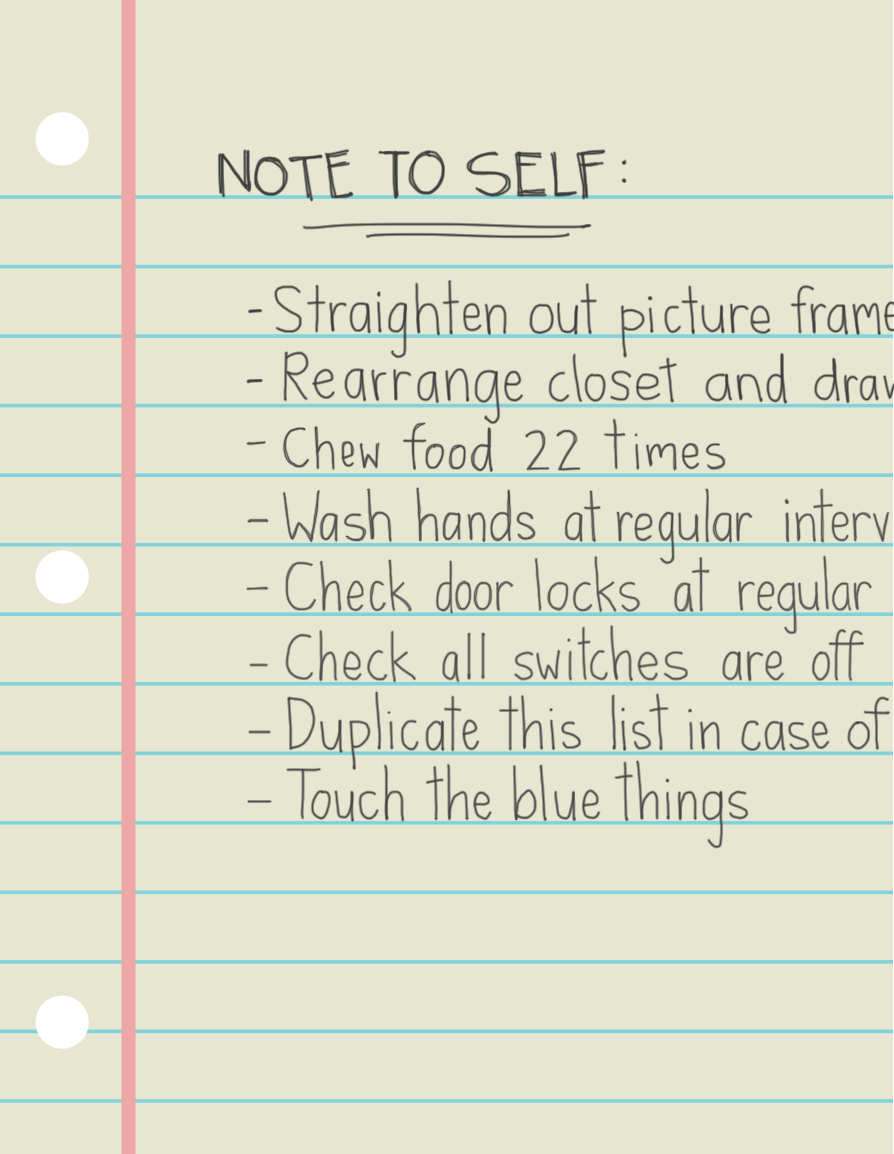 NOTE TO SELF:
- Straighten out picture frame
- Rearrange closet and draw
- Chew food 22 times
- Wash hands at regular interv
- Check door locks at regular
- Check all switches are off
- Duplicate this list in case of
- Touch the blue things